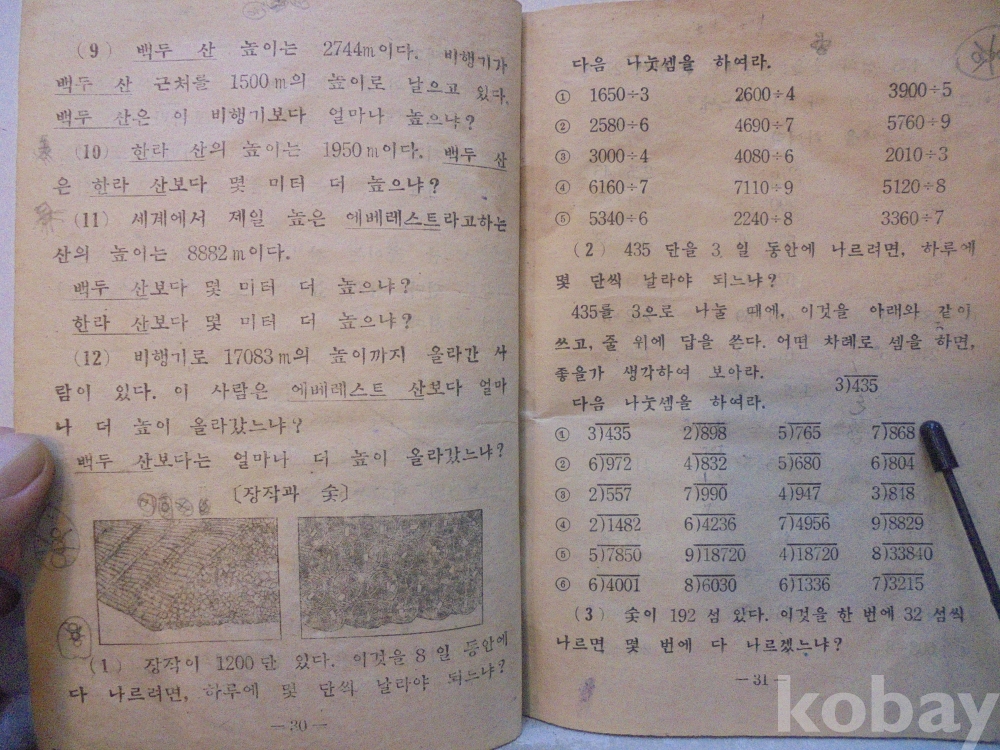 (9) 백두 산 높이는 2744m이다. 비행기가
백두 산 근처를 1500m의 높이로 날으고 있다.
백두 산은 이 비행기보다 얼마나 높으냐?
(10) 한라 산의 높이는 1950m이다. 백두 산
은 한라 산보다 몇 미터 더 높으냐?
(11) 세계에서 제일 높은 에베레스트라고하는
산의 높이는 8882m이다.
백두 산보다 몇 미터 더 높으냐?
한라 산보다 몇 미터 더 높으냐?
(12) 비행기로 17083m의 높이까지 올라간 사
람이 있다. 이 사람은 에베레스트 산보다 얼마
나 더 높이 올라갔느냐?
백두 산보다는 얼마나 더 높이 올라갔느냐?
〔장작과 숯〕
(1) 장작이 1200단 있다. 이것을 8 일 동안에
다 나르려면, 하루에 몇 단씩 날라야 되느냐?
—30—
다음 나눗셈을 하여라.
① 1650÷3 2600÷4 3900÷5
② 2580÷6 4690÷7 5760÷9
③ 3000÷4 4080÷6 2010÷3
④ 6160÷7 7110÷9 5120÷8
⑤ 5340÷6 2240÷8 3360÷7
(2) 435 단을 3 일 동안에 나르려면, 하루에
몇 단씩 날라야 되느냐?
435를 3으로 나눌 때에, 이것을 아래와 같이
쓰고, 줄 위에 답을 쓴다. 어떤 차례로 셈을 하면,
좋을가 생각하여 보아라. 3)435
다음 나눗셈을 하여라.
① 3)435 2)898 5)765 7)868
② 6)972 4)832 5)680 6)804
③ 2)557 7)990 4)947 3)818
④ 2)1482 6)4236 7)4956 9)8829
⑤ 5)7850 9)18720 4)18720 8)33840
⑥ 6)4001 8)6030 6)1336 7)3215
(3) 숯이 192 섬 있다. 이것을 한 번에 32 섬씩
나르면 몇 번에 다 나르겠느냐?
—31—
kobay